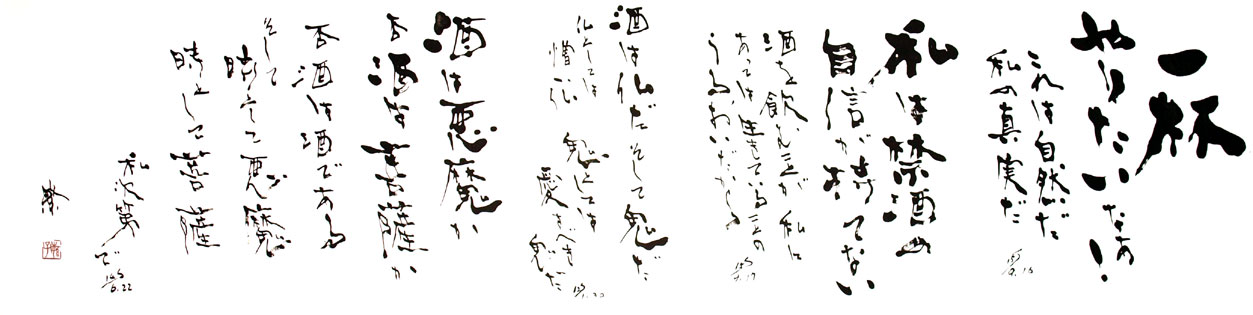 一杯
やりたいなあ!
これは自然だ
私の真実だ
私は禁酒の
自信が持てない
酒を飲むことが私に
あっては生きていることの
うるおいだから
酒は仏だそして鬼だ
仏としては
憎い仏
鬼としては
愛すべき鬼だ
酒は悪魔か
否酒は菩薩か
否酒は酒である
そして
時として悪魔
時として菩薩
私次第で